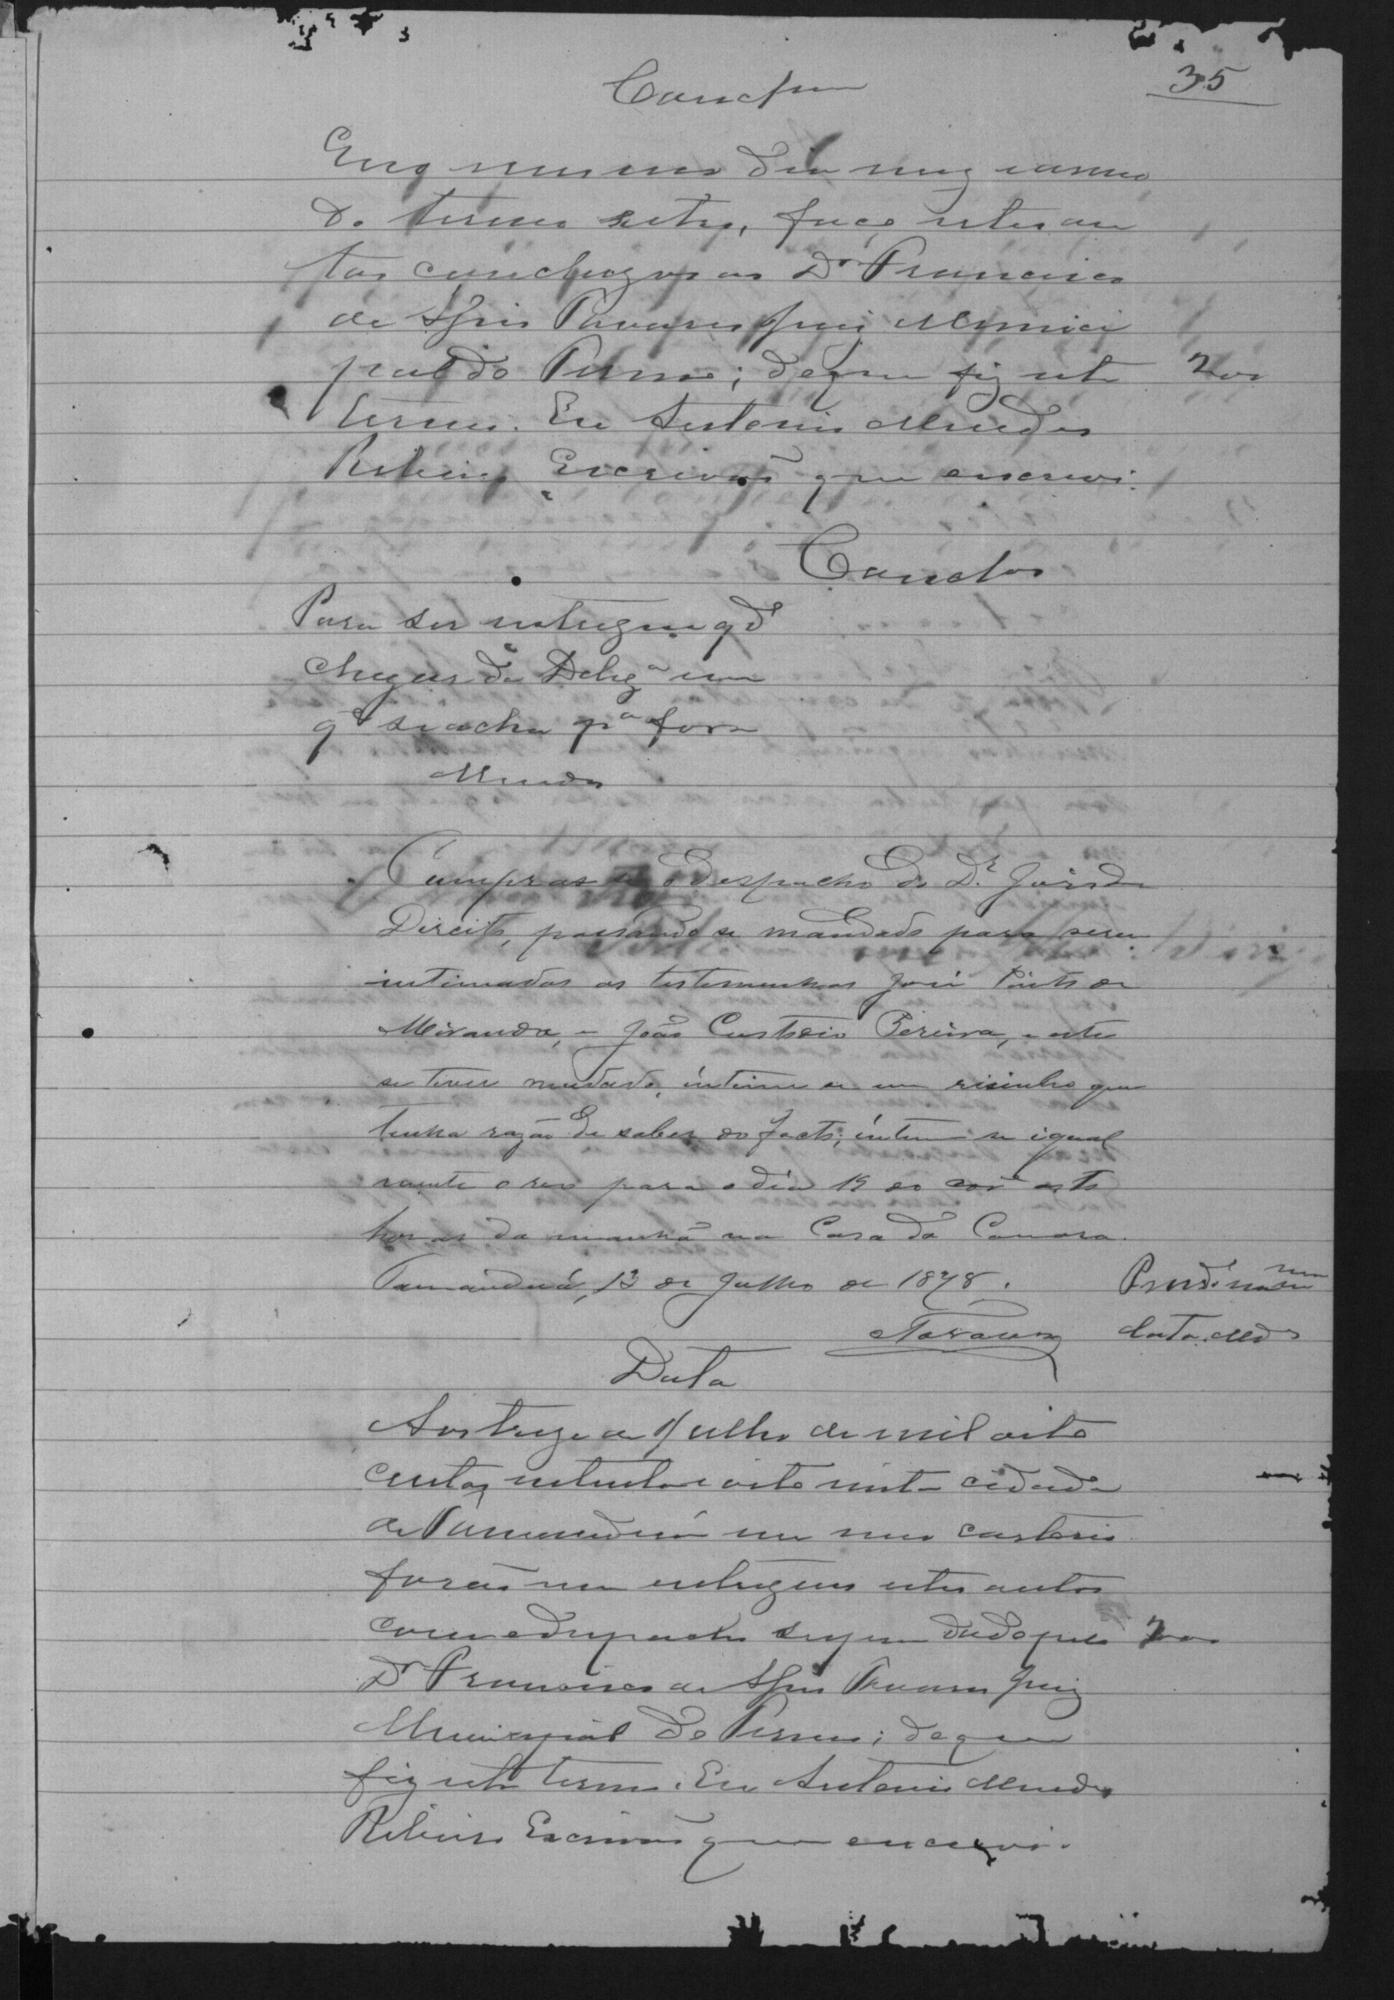 35
Concluzam
E no mesmo dia mez e anno
do termo retro, faço estes au
tos conclusos ao Dr Francisco
de Assis Tavares Juiz Munici
pal do Termo; de que fiz este 200
termo. Eu Antonio Mendes
Ribeiro Escrivão que escrevi.
Conclos
Para ser entregue qdo
chegar da Deliga em
q' se acha pa fora
Mendes
Cumpra-se o despacho do Dr. Juiz de
Direito, passando-se mandado para serem
intimadas as testemunhas José Pinto de
Miranda, e João Custodio Pereira, e este
se tiver mudado, intime-se um visinho que
tenha razão de saber do facto; intime-se igual
mente o reo para o dia 19 do cor as
horas da manhã na Casa da Camara.
Tamanduá, 13 de Julho de 1878.
Tavares
data. Mdes
Data
Aos treze de Julho de mil oito
centos setenta e oito nesta cidade
de Tamanduá em meu cartorio
forão me entregues estes autos
com o despacho supra dado pelo 200
Dr Francisco de Assis Tavares Juiz
Municipal do Termo; de que
fiz este termo. Eu Antonio Mendes
Ribeiro Escrivão que escrevi.